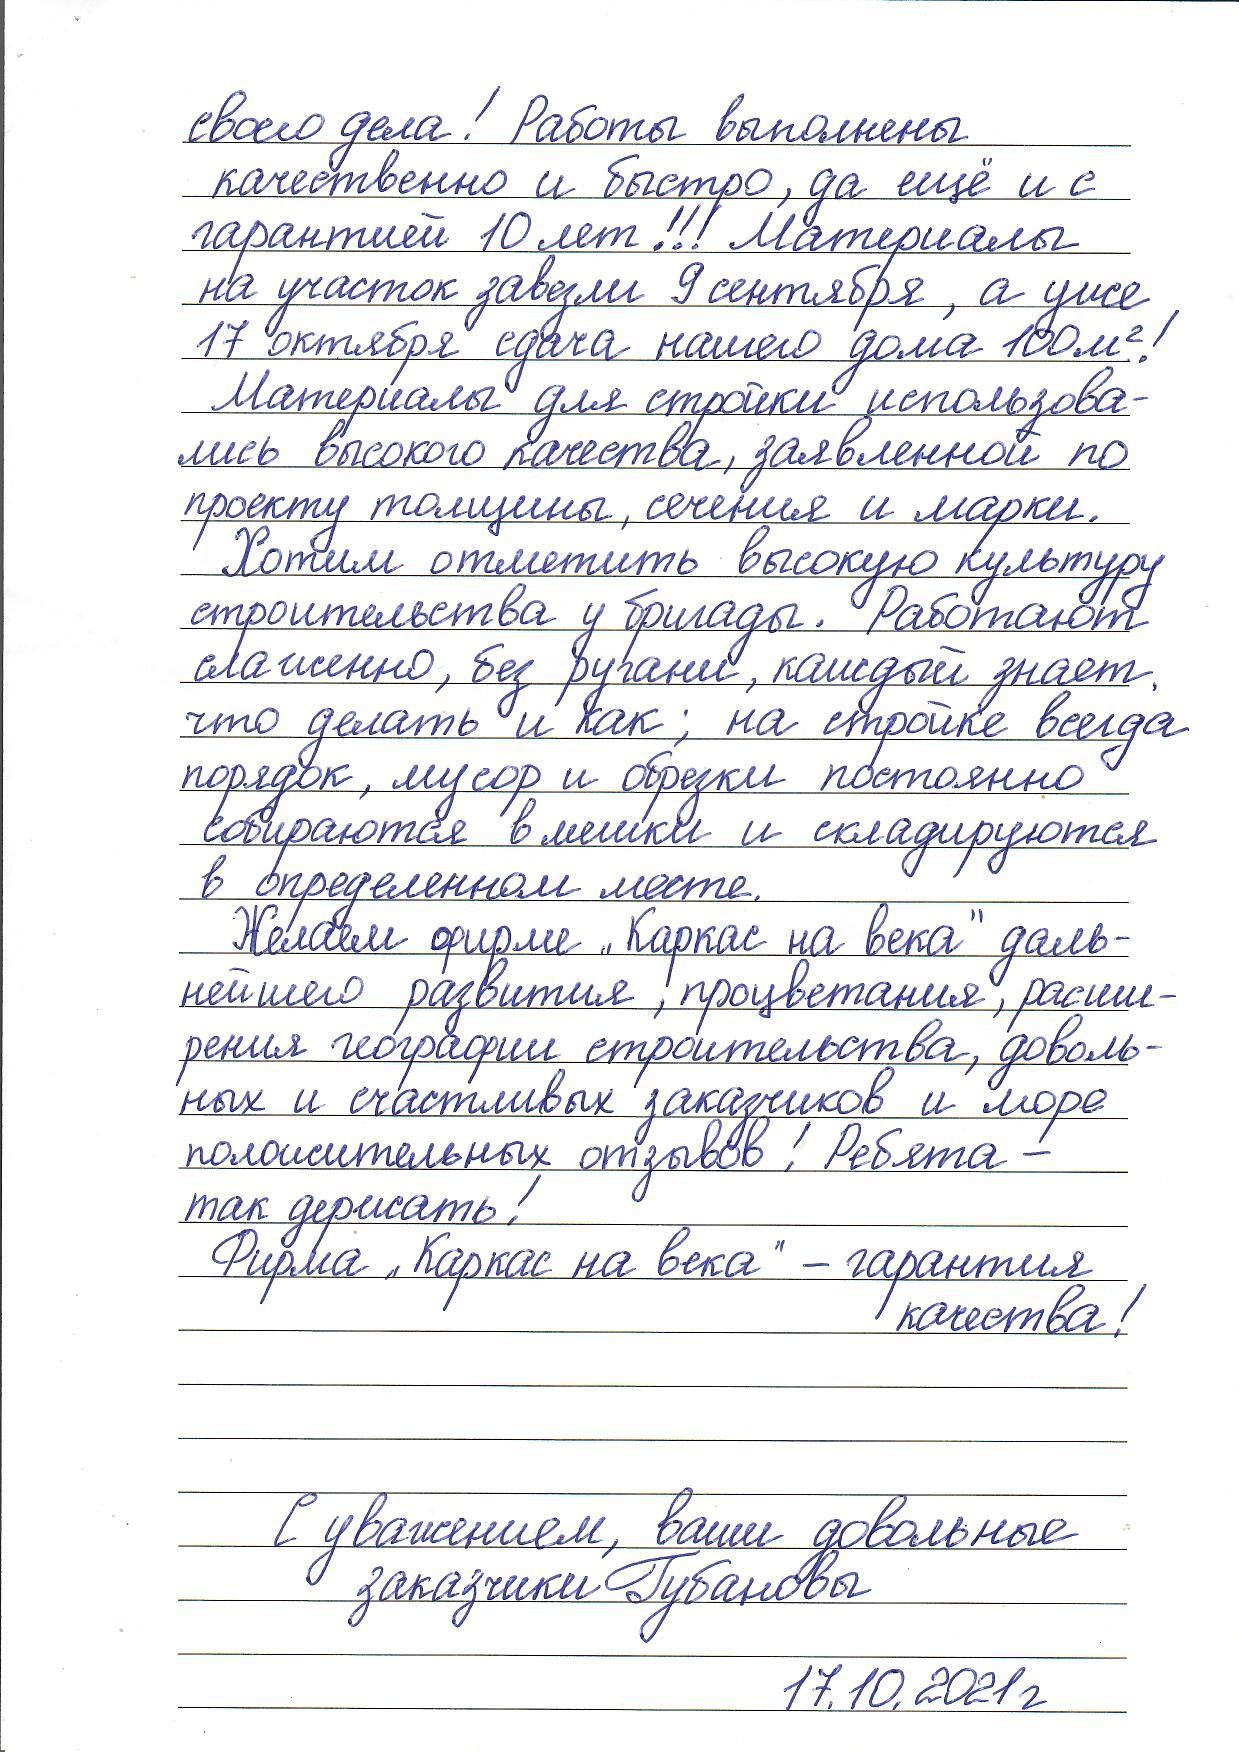 своего дела! Работы выполнены
качественно и быстро, да ещё и с
гарантией 10 лет!!! Материалы
на участок завезли 9 сентября, а уже
17 октября сдача нашего дома 100м²!
Материалы для стройки использова-
лись высокого качества, заявленной по
проекту толщины, сечения и марки.
Хотим отметить высокую культуру
строительства у бригады. Работают
слаженно, без ругани, каждый знает,
что делать и как; на стройке всегда
порядок, мусор и обрезки постоянно
собираются в мешки и складируются
в определенном месте.
Желаем фирме „Каркас на века" даль-
нейшего развития, процветания, расши-
рения географии строительства, доволь-
ных и счастливых заказчиков и море
положительных отзывов! Ребята –
так держать!
Фирма „Каркас на века" – гарантия
качества!
С уважением, ваши довольные
заказчики Губановы
17.10.2021г